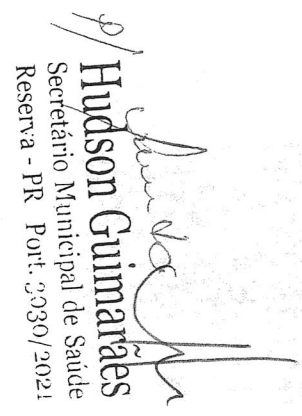 p/
Hudson Guimarães
Secretário Municipal de Saúde
Reserva - PR Port. 2030/2021